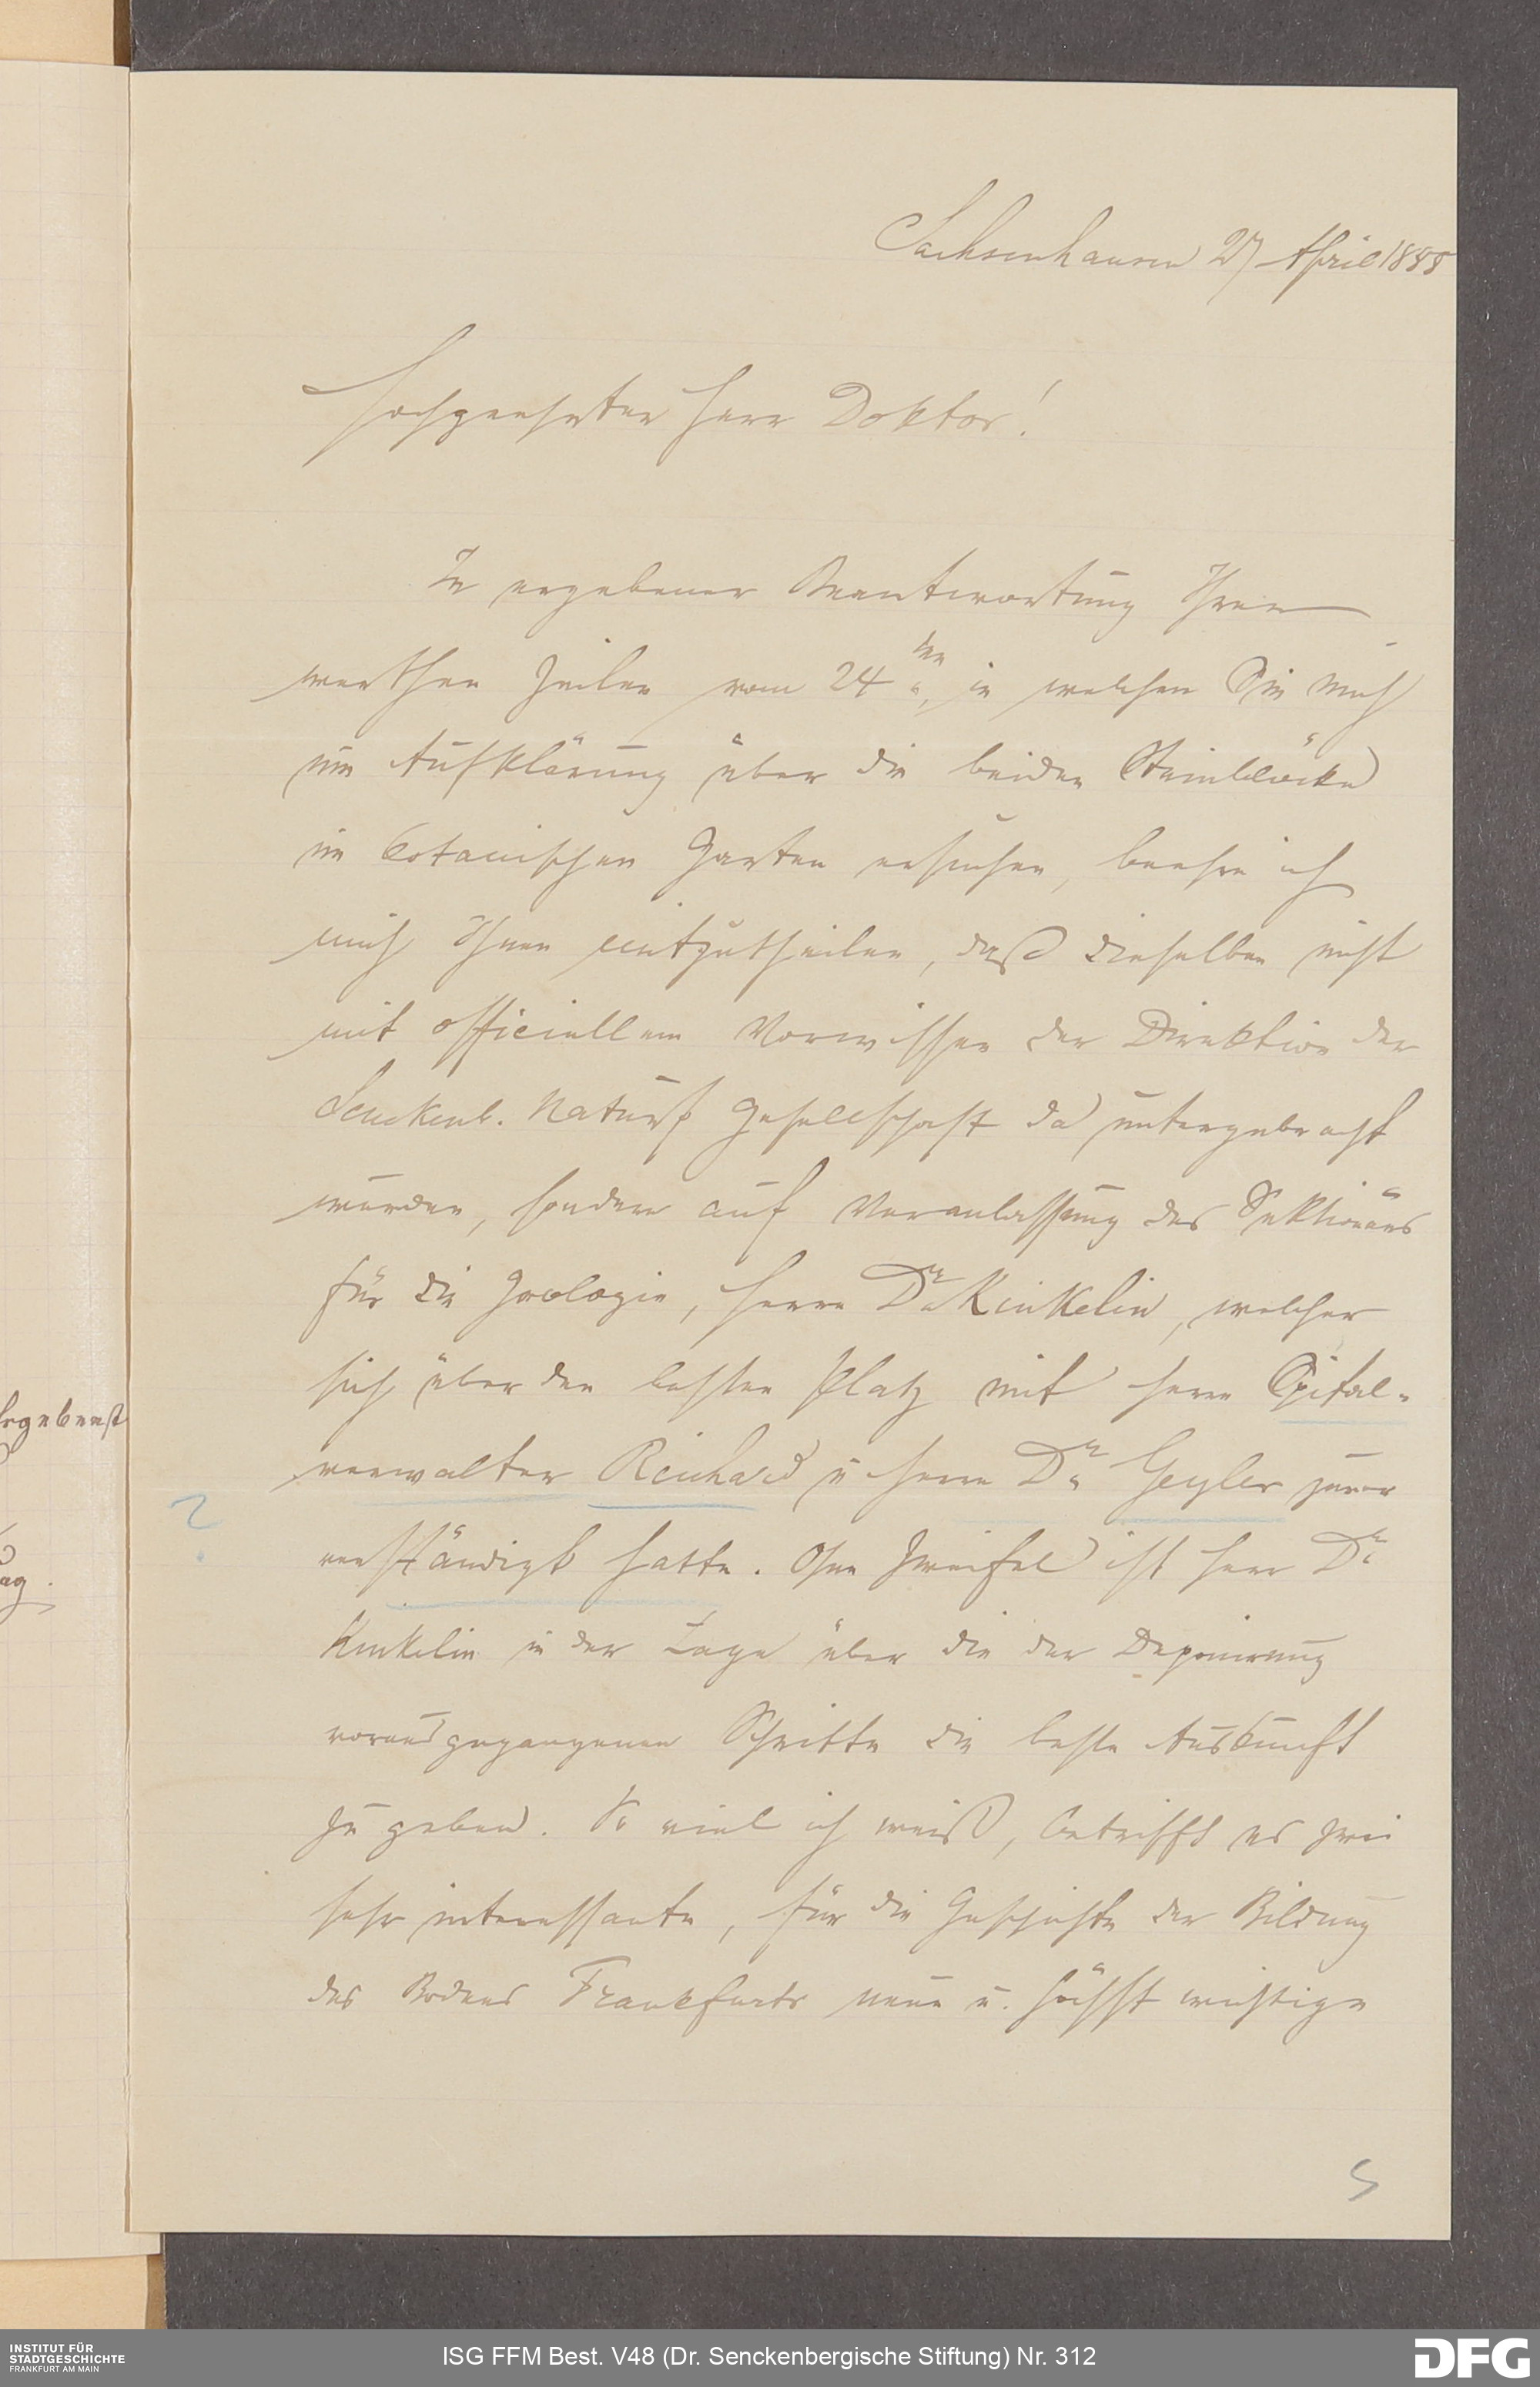 Sachsenhausen 27 April 1888
Hochgeehrter Herr Doktor!
In ergebener Beantwortung Ihrer
werthen Zeilen vom 24ten, in welchen Sie mich
um Aufklärung über die beiden Steinblöcke
im botanischen Garten ersuchen, beehre ich
mich Ihnen mitzutheilen, daß dieselben nicht
mit officiellem Vorwissen der Direktion der
Senckenb. Naturf Gesellschaft da untergebracht
wurden, sondern auf Veranlassung des Sektionärs
für die Geologie, Herrn Dr Kinkelin, welcher
sich über den besten Platz mit Herrn Spital-
verwalter Reichard u Herrn Dr. Geyler zuvor
verständigt hatte. Ohne Zweifel ist Herr Dr.
Kinkelin in der Lage über die der Deponirung
vorausgegangenen Schritte die beste Auskunft
zu geben. So viel ich weiß, betrifft es zwei
sehr interessante, für die Geschichte der Bildung
des Bodens Frankfurts neue u. höchst wichtige
5
?
Ergebenst
ag.
INSTITUT FÜR
STADTGESCHICHTE
FRANKFURT AM MAIN
ISG FFM Best. V48 (Dr. Senckenbergische Stiftung) Nr. 312
DFG